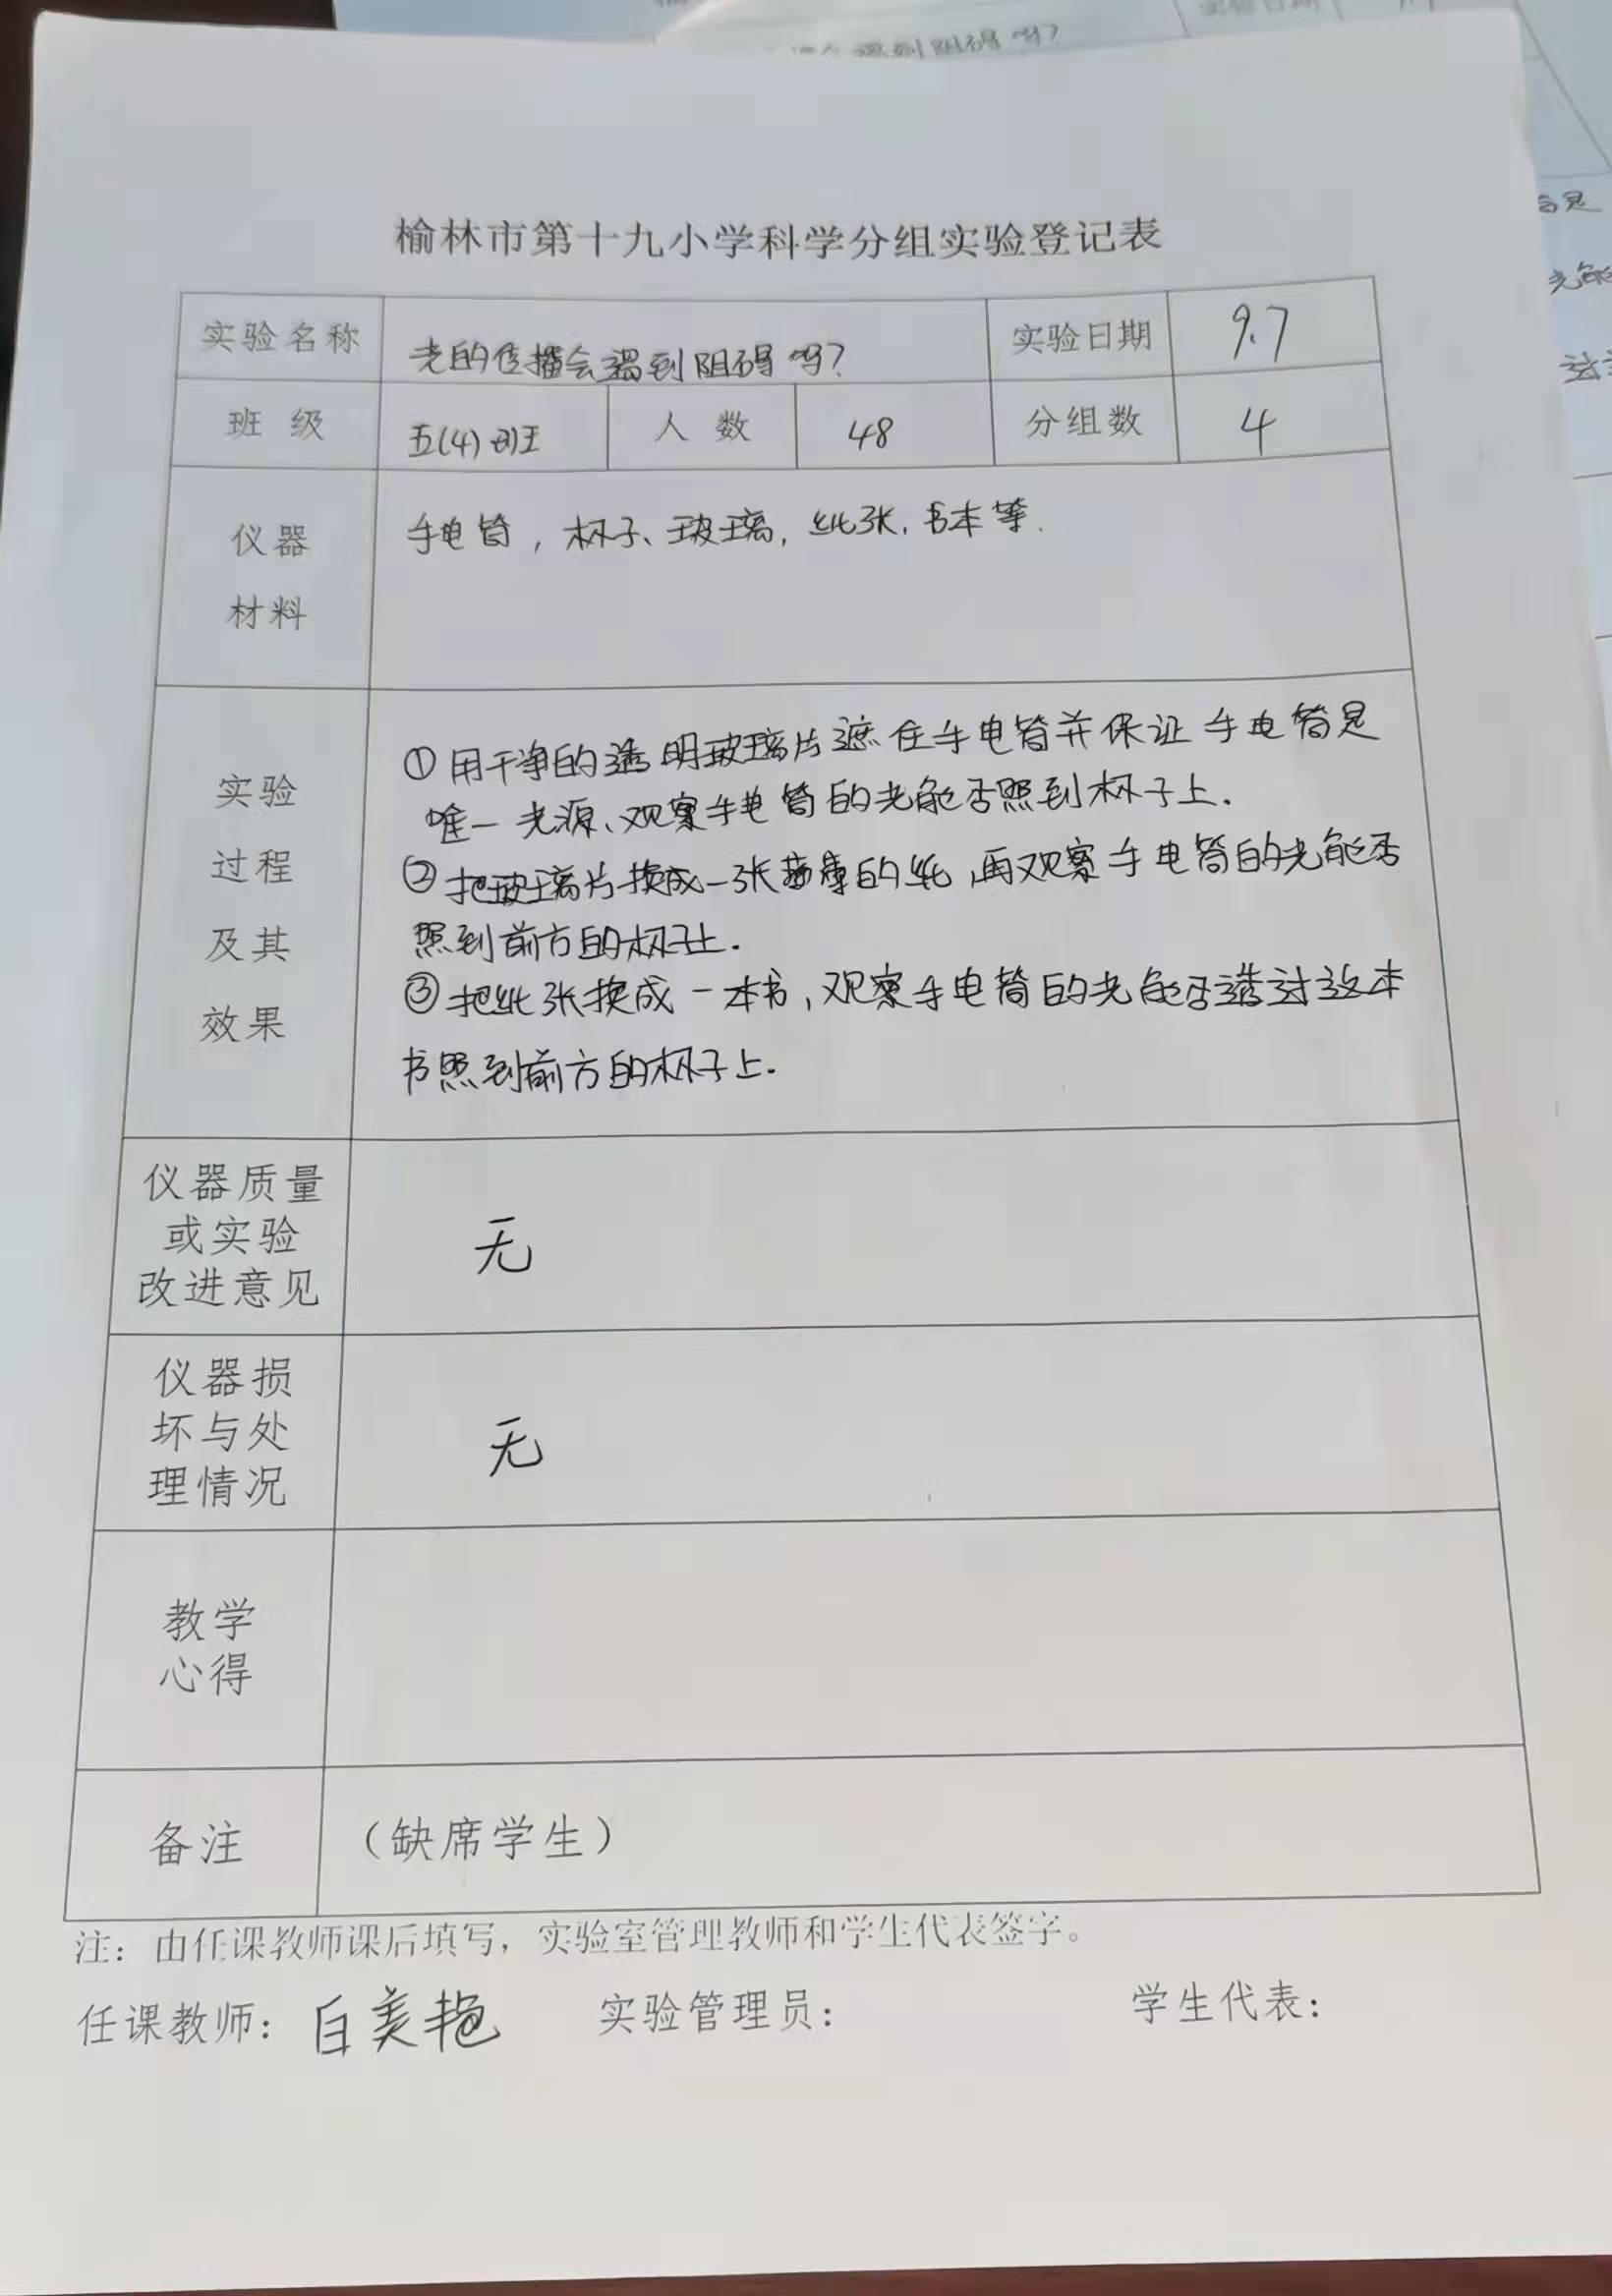 榆林市第十九小学科学分组实验登记表
实验名称 光的传播会遇到阻碍吗? 实验日期 9.7
班 级 五(4)班 人 数 48 分组数 4
仪器
材料
手电筒,杯子、玻璃,纸张,书本等.
实验
过程
及其
效果
①用干净的透明玻璃片遮住手电筒并保证手电筒是
唯一光源、观察手电筒的光能否照到杯子上.
②把玻璃片换成一张薄薄的纸,再观察手电筒的光能否
照到前方的杯子上.
③把纸张换成一本书,观察手电筒的光能否透过这本
书照到前方的杯子上.
仪器质量
或实验
改进意见
无
仪器损
坏与处
理情况
无
教学
心得
备注 (缺席学生)
注:由任课教师课后填写,实验室管理教师和学生代表签字。
任课教师:白美艳 实验管理员: 学生代表: